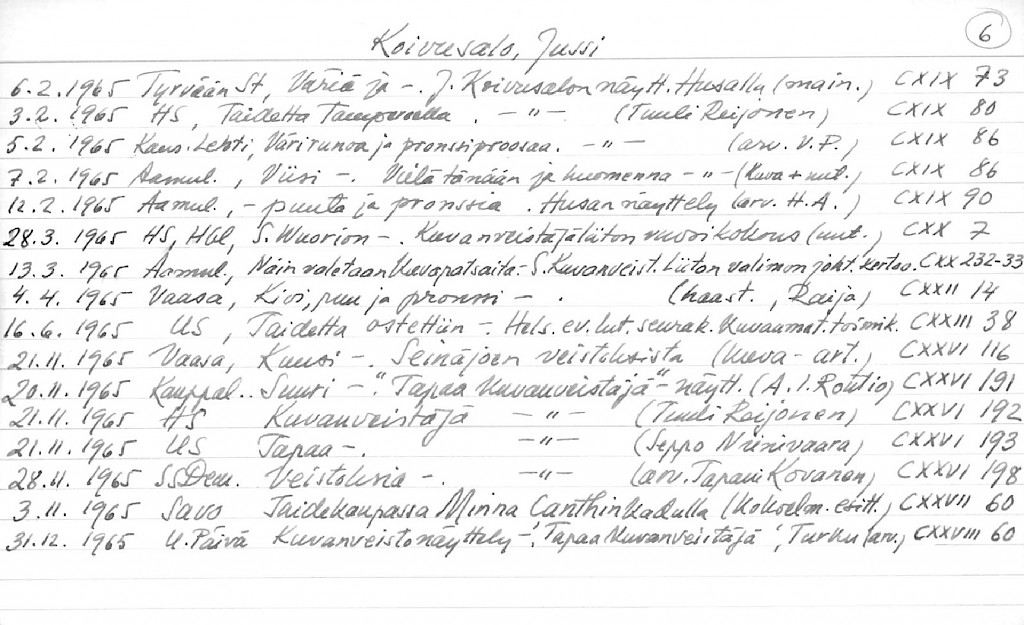 6
Koivusalo, Jussi
6.2.1965 Tyrvään St, Väriä ja -. J. Koivusalon näytt. Husalla (main.) CXIX 73
3.2.1965 HS, Taidetta Tampereella. -"- (Tuuli Reijonen) CXIX 80
5.2.1965 Kans. Lehti, Värirunoa ja pronssiproosaa. -"- (arv. V.P.) CXIX 86
7.2.1965 Aamul., Viisi -. Vielä tänään ja huomenna -"- (kuva + uut.) CXIX 86
12.2.1965 Aamul., - puuta ja pronssia. Husan näyttely (arv. H.A.) CXIX 90
28.3.1965 HS, Hbl, S. Wuorion -. Kuvanveistäjäliiton vuosikokous (uut.) CXX 7
13.3.1965 Aamul., Näin valetaan kuvapatsaita - S. Kuvanveist. Liiton valimon joht. kertoo. CXX 232-33
4.4.1965 Vaasa, Kivi, puu ja pronssi -. (haast., Raija) CXXII 14
16.6.1965 US, Taidetta ostettiin -. Hels. ev. lut. seurak. kuvaamat. toimik. CXXIII 38
21.11.1965 Vaasa, Kuusi -. Seinäjoen veistoksista (kuva-art.) CXXVI 116
20.11.1965 Kauppal.. Suuri - "Tapaa kuvanveistäjä" - näytt. (A.I. Routio) CXXVI 191
21.11.1965 HS Kuvanveistäjä -"- (Tuuli Reijonen) CXXVI 192
21.11.1965 US Tapaa -. -"- (Seppo Niinivaara) CXXVI 193
28.11.1965 SSDem. Veistoksia -. -"- (arv. Tapani Kovanen) CXXVI 198
3.11.1965 Savo Taidekaupassa Minna Canthin kadulla (kokoelm. esitt.) CXXVII 60
31.12.1965 U. Päivä Kuvanveistonäyttely - 'Tapaa kuvanveistäjä', Turku (arv.) CXXVIII 60